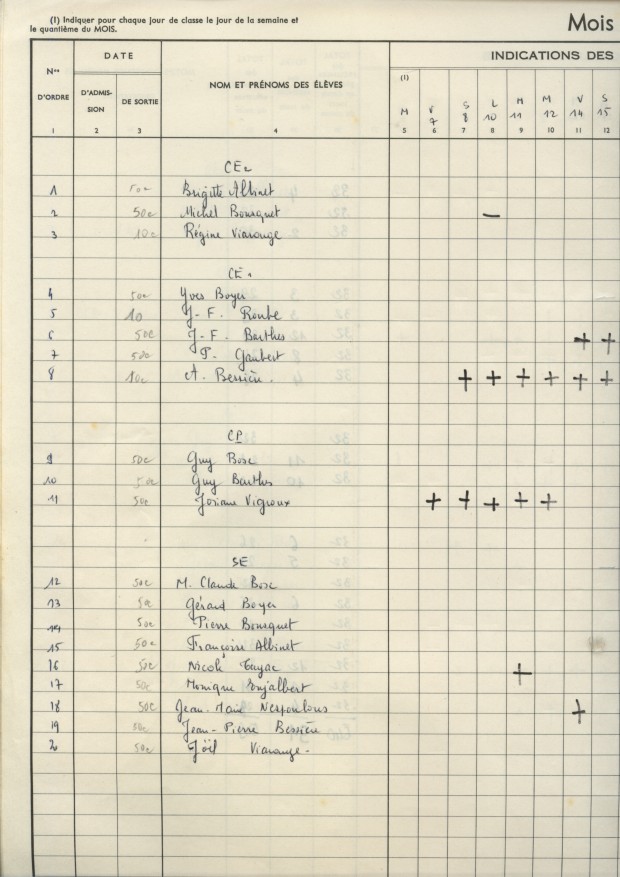 (1) Indiquer pour chaque jour de classe le jour de la semaine et
le quantième du MOIS.
Mois
Nos D'ORDRE
DATE
D'ADMISSION
DE SORTIE
NOM ET PRÉNOMS DES ÉLÈVES
INDICATIONS DES
(1)
M V 7 S 8 L 10 M 11 M 12 V 14 S 15
1 2 3 4 5 6 7 8 9 10 11 12
CE2
1 50c Brigitte Albinet
2 50c Michel Bousquet —
3 10c Régine Viarouge
CE1
4 50c Yves Boyer
5 10 J-F. Roube
6 50c J-F. Barthes + +
7 50c P. Gaubert
8 10c A. Bessière. + + + + + +
CP
9 50c Guy Bosc
10 50c Guy Barthes
11 50c Josiane Vigroux + + + + +
SE
12 50c M. Claude Bosc
13 50c Gérard Boyer
14 50c Pierre Bousquet
15 50c Françoise Albinet
16 50c Nicole Cayac +
17 50c Monique Enjalbert
18 50c Jean-Marie Nespoulous +
19 50c Jean-Pierre Bessière
20 50c Joël Viarouge-